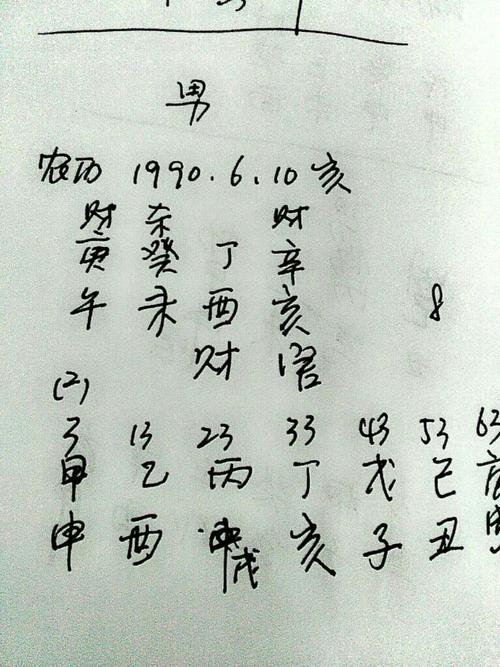 男
农历 1990.6.10 亥
财 杀 财
庚 癸 丁 辛
午 未 酉 亥 8
财 官
(2)
3 13 23 33 43 53 63
甲 乙 丙 丁 戊 己
申 酉 戌 亥 子 丑